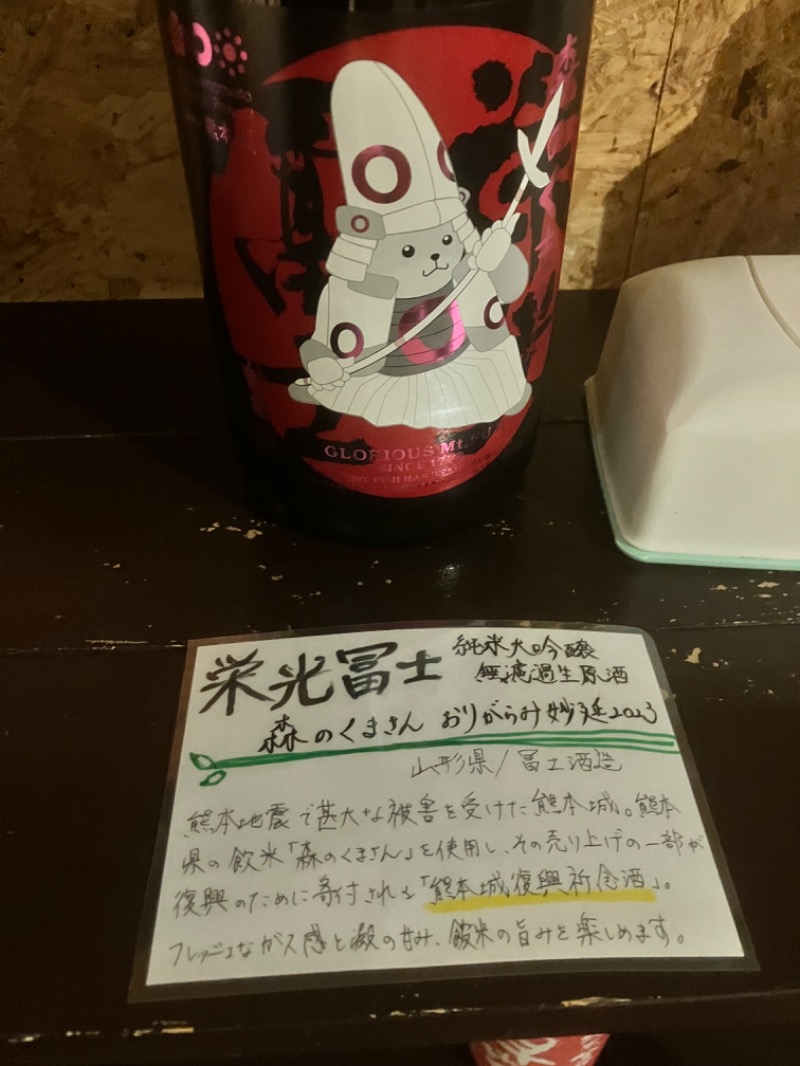 GLORIOUS Mt.FU
SINCE 17
栄光冨士
純米大吟醸
無濾過生原酒
森のくまさん おりがらみ妙延2023
山形県/冨士酒造
熊本地震で甚大な被害を受けた熊本城。熊本
県の飯米「森のくまさん」を使用し、その売り上げの一部が
復興のために寄付される「熊本城復興祈念酒」。
フレッシュなガス感と澱の甘み、飯米の旨みを楽しめます。